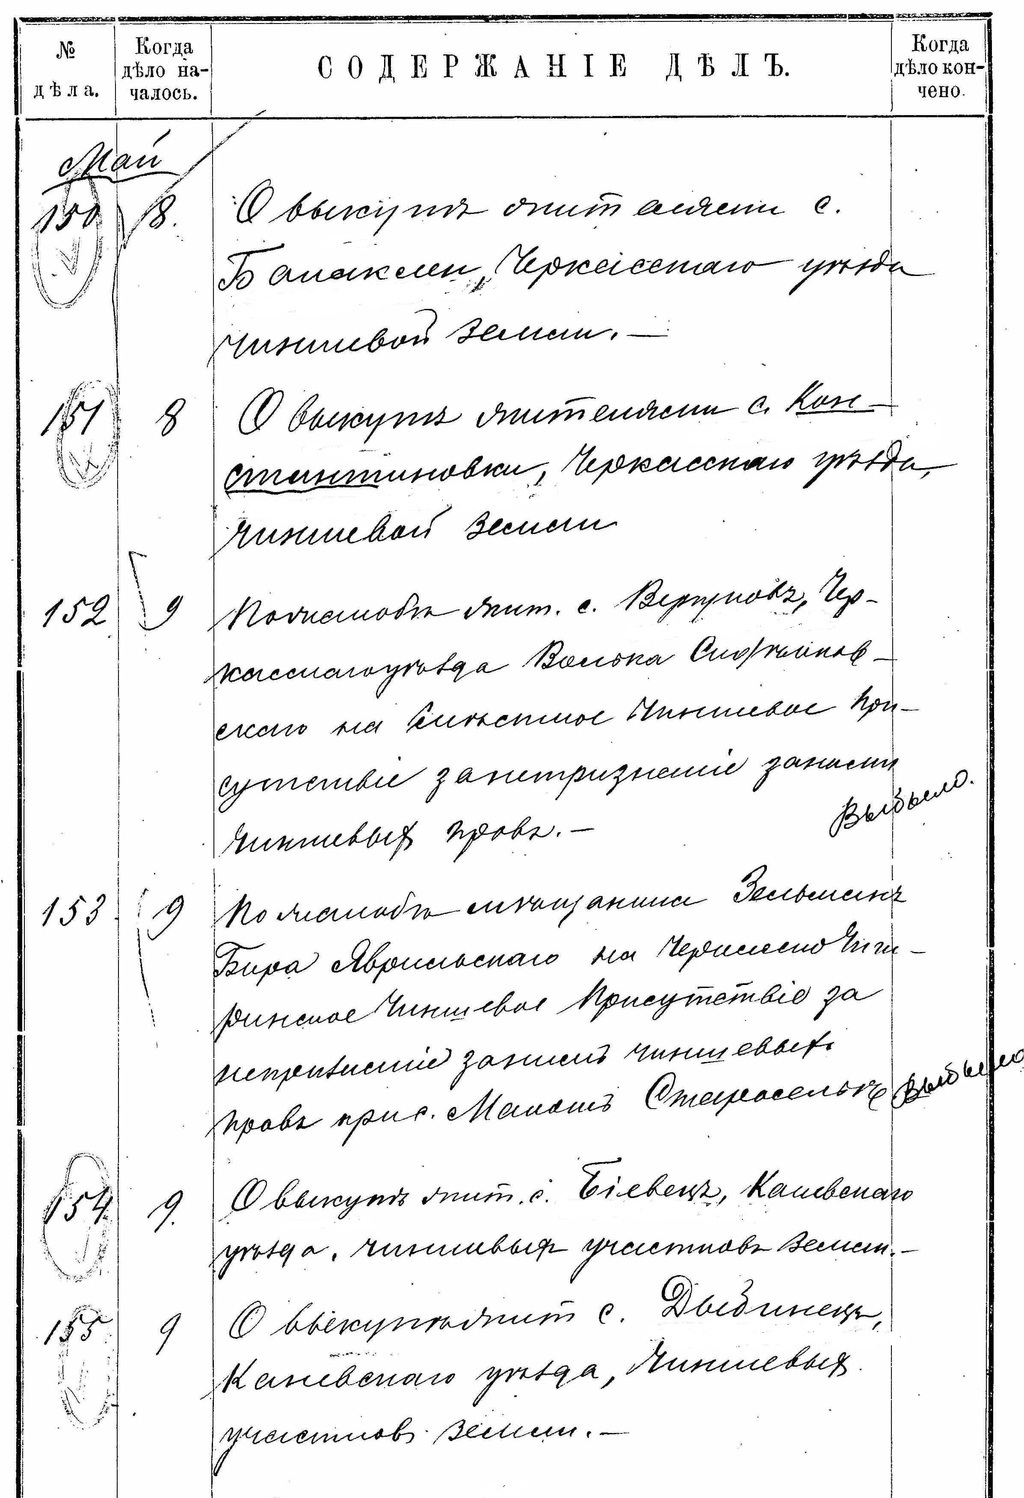 № дѣла.
Когда дѣло на-чалось.
СОДЕРЖАНІЕ ДѢЛЪ.
Когда дѣло кон-чено.
Май
150 8. О выкупѣ жителями с.
Балаклеи, Черкасскаго уѣзда
чиншевой земли. —
151 8 О выкупѣ жителями с. Кон-
стантиновки, Черкасскаго уѣзда,
чиншевой земли
152 9 По жалобѣ жит. с. Вергуновъ, Чер-
касскаго уѣзда Волька
скаго на Чиншевое При-
сутствіе за непризнаніе за нимъ
чиншевыхъ правъ. —
Выбыло.
153 9 По жалобѣ мѣщанина Зельмана
Бера на Черкасско Чиги-
ринское Чиншевое Присутствіе за
непризнаніе за нимъ чиншевыхъ
правъ при с. Старосельѣ
Выбыло
154 9. О выкупѣ жит. с. Біевецъ, Каневскаго
уѣзда, чиншевыхъ участковъ земли. —
155 9 О выкупѣ жит с. Дыбинецъ,
Каневскаго уѣзда, чиншевыхъ
участковъ земли. —